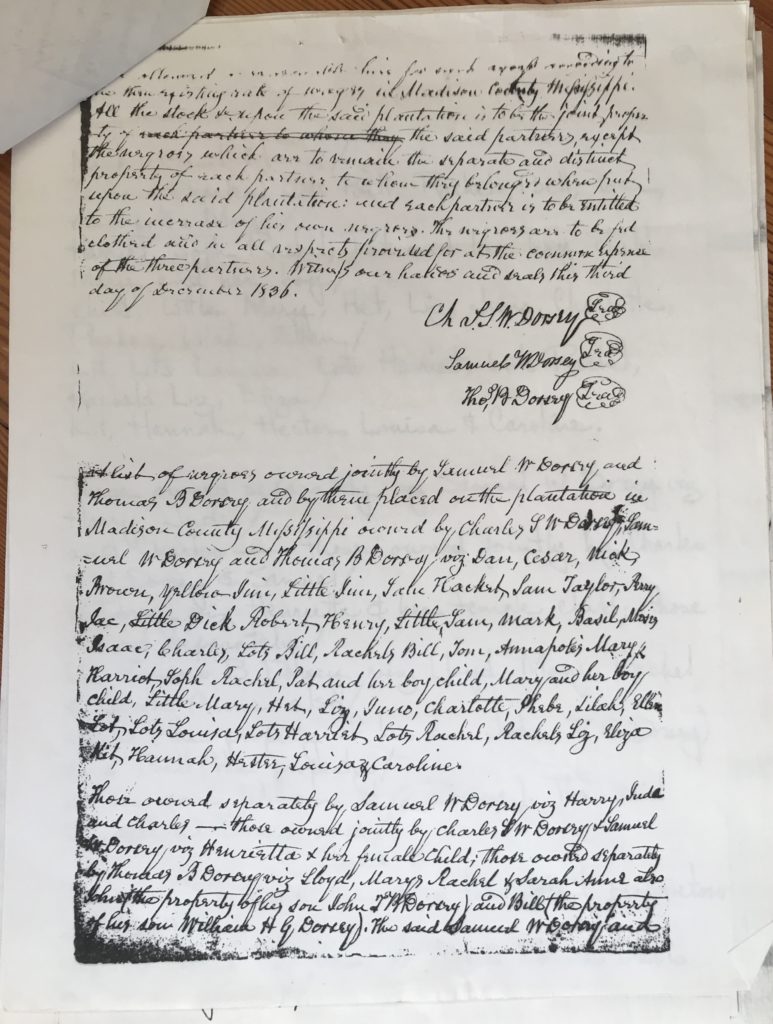 allowed a reasonable hire for such except according to
the then existing rate of wages in Madison County Mississippi.
All the stock &c upon the said plantation is to be the joint proper
ty of each partner to whom they the said partners, except
the negroes which are to remain the separate and distinct
property of each partner to whom they belonged when put
upon the said plantation: and each partner is to be entitled
to the increase of his own negroes. The negroes are to be fed
clothed and in all respects provided for at the common expense
of the three partners. Witness our hands and seals this third
day of December 1836.
Ch S. W. Dorsey Seal
Samuel W Dorsey Seal
Tho, B Dorsey Seal
A list of negroes owned jointly by Samuel W Dorsey and
Thomas B Dorsey and by them placed on the plantation in
Madison County Mississippi owned by Charles S W Dorsey, Sam-
-uel W Dorsey and Thomas B Dorsey viz Dan, Cesar, Nick,
Brown, Yellow Jim, Little Jim, Sam Hacket, Sam Taylor, Perry
Jac, Little Dick Robert, Henry, Little Sam, Mark, Basil, Moses
Isaac, Charles, Lots Bill, Rachels Bill, Tom, Annapolis Mary &
Harriet, Soph Rachel, Pat and her boy child, Mary and her boy
child, Little Mary, Het, Liz, Juno, Charlotte, Phebe, Lilah, Ellen
Lot, Lots Louisa, Lots Harriet, Lots Rachel, Rachels Liz, Eliza
Kit, Hannah, Hester, Louisa & Caroline.
Those owned separately by Samuel W Dorsey viz Harry, Juda
and Charles — those owned jointly by Charles S W Dorsey & Samuel
W Dorsey viz Henrietta & her female child; those owned separately
by Thomas B Dorsey viz Lloyd, Marys Rachel & Sarah Anne also
John (the property of his son John T B Dorsey) and Bill (the property
of his son William H G Dorsey). The said Samuel W Dorsey and